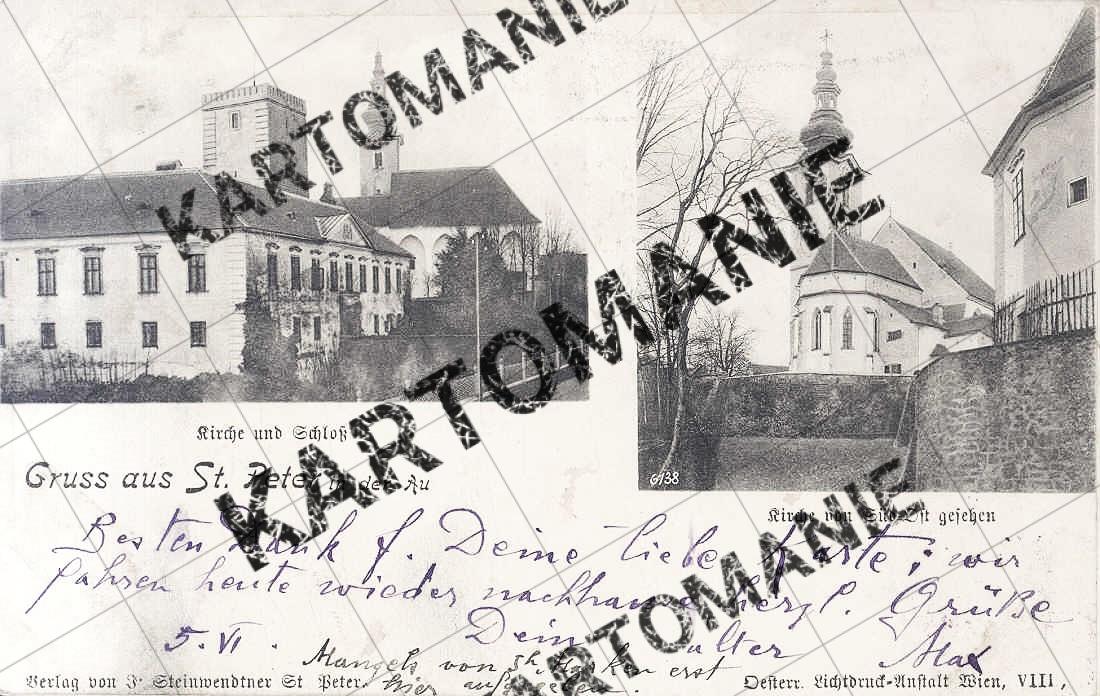 KARTOMANIE
KARTOMANIE
KARTOMANIE
KARTOMANIE
6138
Kirche und Schloß
Gruss aus St. Peter in der Au
Kirche von Süd-Ost gesehen
Besten Dank f. Deine liebe Karte; wir
fahren heute wieder nachhause herzl. Grüße
5. VI. Dein alter Max
Mangels von 5h Marken erst
hier aufgegeben.
Verlag von J. Steinwendtner St Peter.
Oesterr. Lichtdruck-Anstalt Wien, VIII,